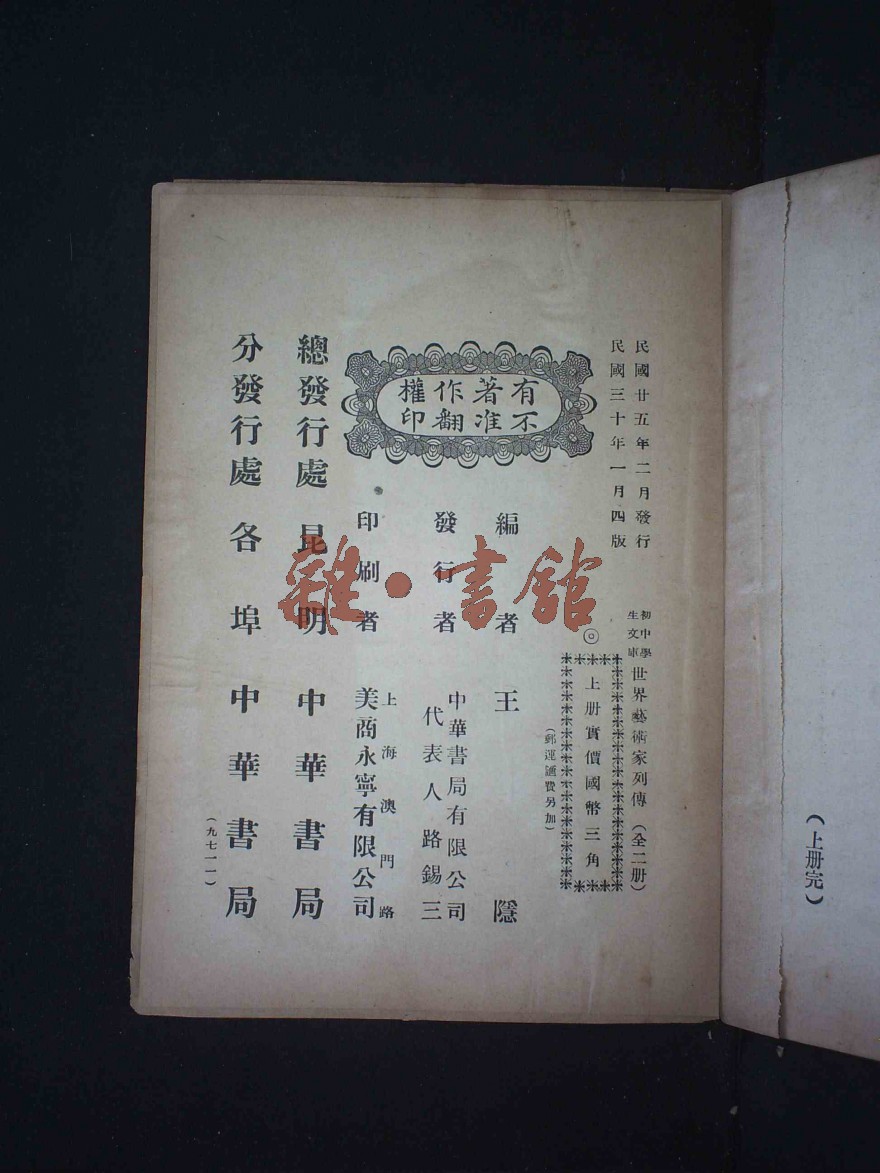 (上册完)
民國廿五年二月發行
民國三十年一月四版
初中學
生文庫
世界藝術家列傳 (全二册)
◎
上册實價國幣三角
(郵運匯費另加)
有著作權
不准翻印
編者 王隱
發行者 中華書局有限公司
代表人路錫三
上海澳門路
印刷者 美商永寧有限公司
總發行處 昆明 中華書局
分發行處 各埠 中華書局
(九七一一)
雜·書館